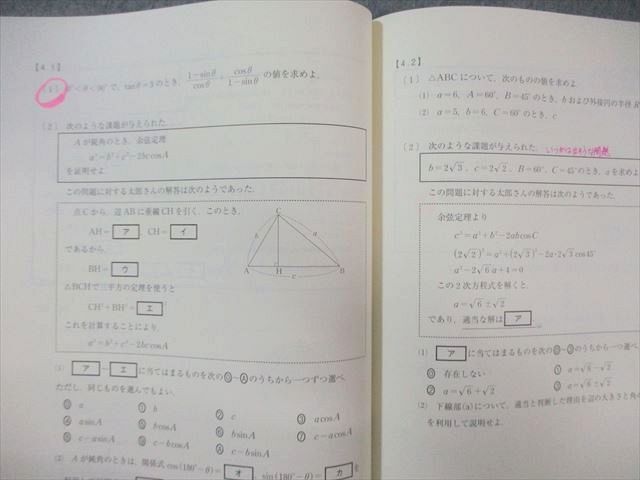 【4.1】
(1) 0°<θ<90°で、tanθ=3のとき、(1-sinθ)/cosθ + cosθ/(1-sinθ) の値を求めよ。
(2) 次のような課題が与えられた
Aが鋭角のとき、余弦定理
a²=b²+c²-2bc cosA
を証明せよ
この問題に対する太郎さんの解答は次のようであった。
点Cから、辺ABに垂線CHを引く、このとき、
AH= ア 、CH= イ
であるから、
BH= ウ
△BCHで三平方の定理を使うと
CH²+BH²= エ
これを計算することにより、
a²=b²+c²-2bc cosA
C
b
a
A
H
B
c
(1) ア ~ エ に当てはまるものを次の⓪~Ⓐのうちから一つずつ選べ。
ただし、同じものを選んでもよい。
⓪ a ① b ② c ③ a cosA
④ a sinA ⑤ b cosA ⑥ b sinA ⑦ c-a cosA
⑧ c-a sinA ⑨ c-b cosA Ⓐ c-b sinA
(2) Aが鈍角のときは、関係式 cos(180°-θ)= オ 、sin(180°-θ)= カ を
【4.2】
(1) △ABCについて、次のものの値を求めよ
(1) a=6、A=60°、B=45°のとき、bおよび外接円の半径R
(2) a=5、b=6、C=60°のとき、c
(2) 次のような課題が与えられた。
b=2√3、c=2√2、B=60°、C=45°のとき、aを求めよ
この問題に対する太郎さんの解答は次のようであった。
余弦定理より
c²=a²+b²-2ab cosC
(2√2)²=a²+(2√3)²-2a・2√3 cos45°
a²-2√6a+4=0
この2次方程式を解くと、
a=√6±√2
であり、適当な解は ア
(1) ア に当てはまるものを次の⓪~③のうちから一つ選べ
⓪ 存在しない ① a=√6-√2
② a=√6+√2 ③ a=√6±√2
(2) 下線部(a)について、適当と判断した理由を辺の大きさと角の
を利用して説明せよ